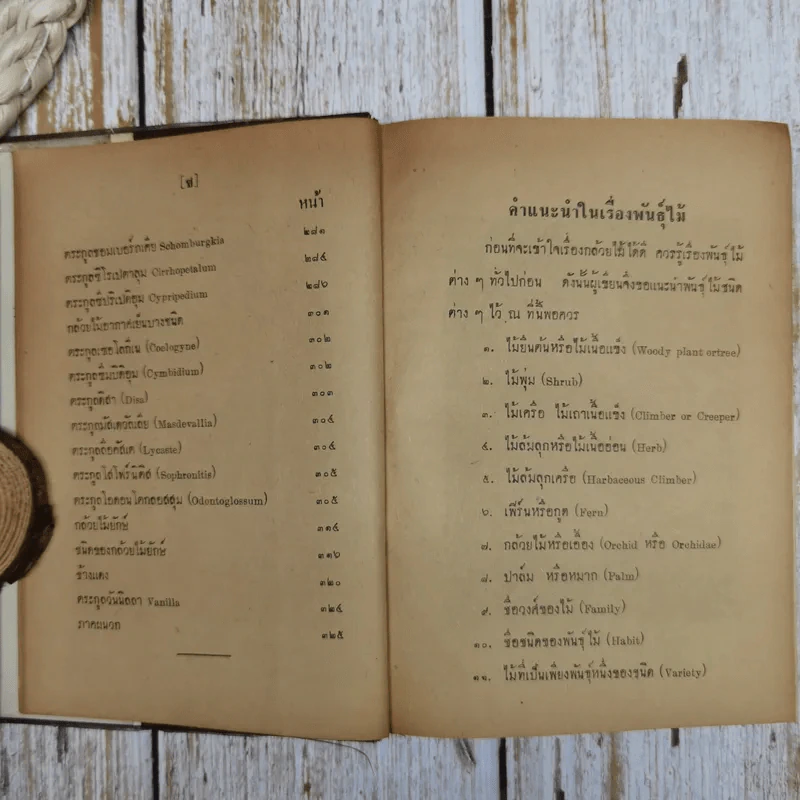 [ช]
หน้า
ตระกูลชอมเบอร์กเคีย Schomburgkia ๒๘๓
ตระกูลซีโรเปตาลุม Cirrhopetalum ๒๘๔
ตระกูลซิปริเปดิอุม Cypripedium ๒๘๖
กล้วยไม้อากาศเย็นบางชนิด ๓๐๑
ตระกูลเซอโลกีเน (Coelogyne) ๓๐๒
ตระกูลซิมบิดิอุม (Cymbidium) ๓๐๒
ตระกูลดิสา (Disa) ๓๐๓
ตระกูลมัสเดวัลเลีย (Masdevallia) ๓๐๔
ตระกูลลิอคัสเต (Lycaste) ๓๐๔
ตระกูลโสโฟรนิติส (Sophronitis) ๓๐๕
ตระกูลโอดอนโตกลอสสุม (Odontoglossum) ๓๐๕
กล้วยไม้ยักษ์ ๓๑๔
ชนิดของกล้วยไม้ยักษ์ ๓๑๖
ช้างแดง ๓๒๐
ตระกูลวันนิลลา Vanilla ๓๒๔
ภาคผนวก ๓๒๕
คำแนะนำในเรื่องพันธุ์ไม้
ก่อนที่จะเข้าใจเรื่องกล้วยไม้ได้ดี ควรรู้เรื่องพันธุ์ไม้
ต่าง ๆ ทั่วไปก่อน ดังนั้นผู้เขียนจึงขอแนะนำพันธุ์ไม้ชนิด
ต่าง ๆ ไว้ ณ ที่นี้พอควร
๑. ไม้ยืนต้นหรือไม้เนื้อแข็ง (Woody plant ortree)
๒. ไม้พุ่ม (Shrub)
๓. ไม้เครือ ไม้เถาเนื้อแข็ง (Climber or Creeper)
๔. ไม้ล้มลุกหรือไม้เนื้ออ่อน (Herb)
๕. ไม้ล้มลุกเครือ (Harbaceous Climber)
๖. เฟิร์นหรือกูด (Fern)
๗. กล้วยไม้หรือเอื้อง (Orchid หรือ Orchidae)
๘. ปาล์ม หรือหมาก (Palm)
๙. ชื่อวงศ์ของไม้ (Family)
๑๐. ชื่อชนิดของพันธุ์ไม้ (Habit)
๑๑. ไม้ที่เป็นเพียงพันธุ์หนึ่งของชนิด (Variety)